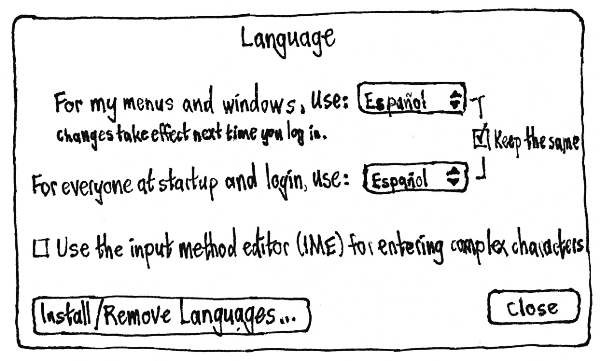 Language
For my menus and windows, use: Español
changes take effect next time you log in.
Keep the same
For everyone at startup and login, use: Español
Use the input method editor (IME) for entering complex characters
Install/Remove Languages... Close